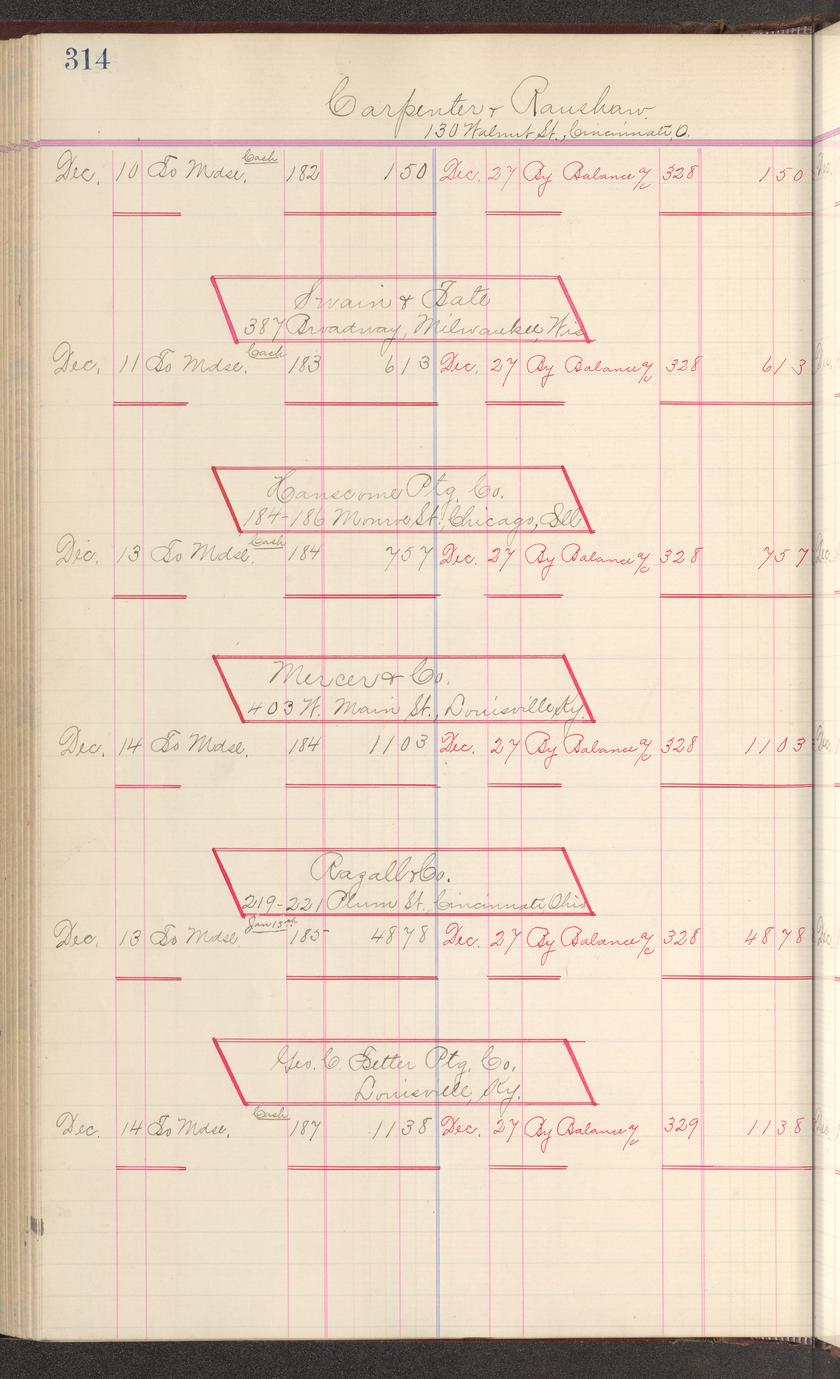 314
Carpenter & Ranshaw
130 Walnut St., Cincinnati, O.
Dec. 10 To Mdse. Cash 182 1 50 Dec. 27 By Balance a/c 328 1 50
Swain & Tate
387 Broadway, Milwaukee, Wis
Dec. 11 To Mdse. Cash 183 6 13 Dec. 27 By Balance a/c 328 6 13
Hanscome Ptg. Co.
184-186 Monroe St., Chicago, Ill
Dec. 13 To Mdse. Cash 184 7 57 Dec. 27 By Balance a/c 328 7 57
Mercer & Co.
403 W. Main St., Louisville, Ky.
Dec. 14 To Mdse. 184 11 03 Dec. 27 By Balance a/c 328 11 03
Ragall & Co.
219-221 Plum St. Cincinnati, Ohio
Dec. 13 To Mdse Jan 13rd 185 48 78 Dec. 27 By Balance a/c 328 48 78
Geo. C. Fetter Ptg. Co.
Louisville, Ky.
Dec. 14 To Mdse. Cash 187 11 38 Dec. 27 By Balance a/c 329 11 38